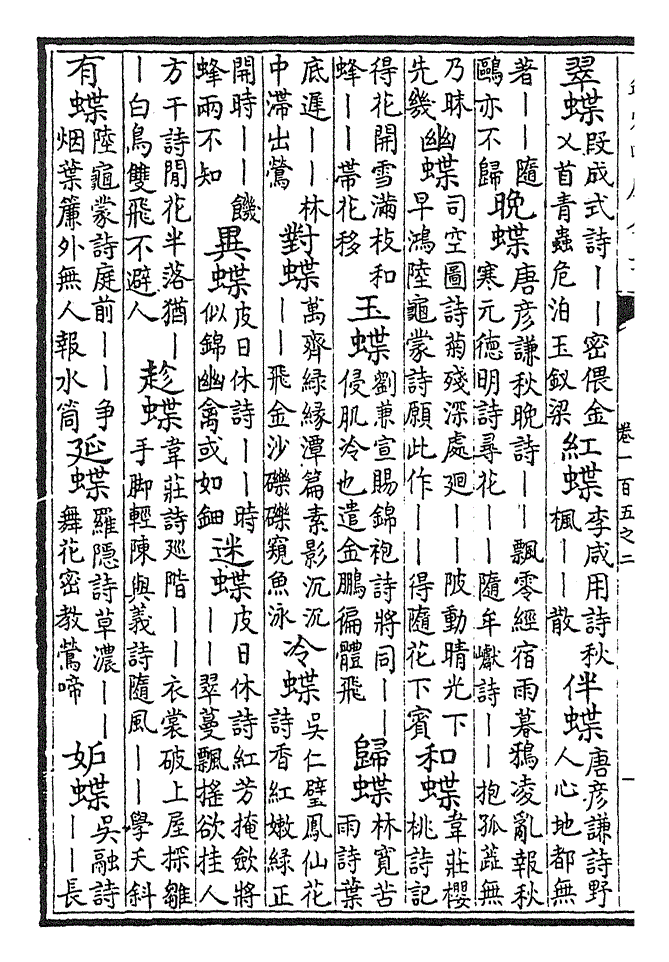 翠蝶 段成式詩——密偎金乂首青蟲危泊玉釵梁 紅蝶 李咸用詩秋楓——散 伴蝶 唐彦謙詩野人心地都無
著——隨鷗亦不歸 晚蝶 唐彦謙秋晚詩——飄零經宿雨暮鴉凌亂報秋寒元德明詩尋花——隨牟巘詩——抱孤蕋無
乃昧先幾 幽蝶 司空圖詩菊殘深處廻——陂動晴光下早鴻陸龜蒙詩願此作——得隨花下賓 和蝶 韋莊櫻桃詩記
得花開雪滿枝和蜂——帶花移 玉蝶 劉兼宣賜錦袍詩將同——侵肌冷也遣金鵬徧體飛 歸蝶 林寛苦雨詩葉
底遲——林中滯出鶯 對蝶 萬齊緑緣潭篇素影沉沉——飛金沙礫礫窺魚泳 冷蝶 吳仁璧鳳仙花詩香紅嫩緑正
開時——饑蜂兩不知 異蝶 皮日休詩——時似錦幽禽或如鈿 迷蝶 皮日休詩紅芳掩斂將——翠蔓飄搖欲挂人
方干詩閒花半落猶——白鳥雙飛不避人 趁蝶 韋莊詩廵階——衣裳破上屋探雛手脚輕陳與義詩隨風——學夭斜
有蝶 陸龜蒙詩庭前——争烟葉簾外無人報水筒 延蝶 羅隱詩草濃——舞花密教鶯啼 妬蝶 吳融詩——長
卷一百五之二